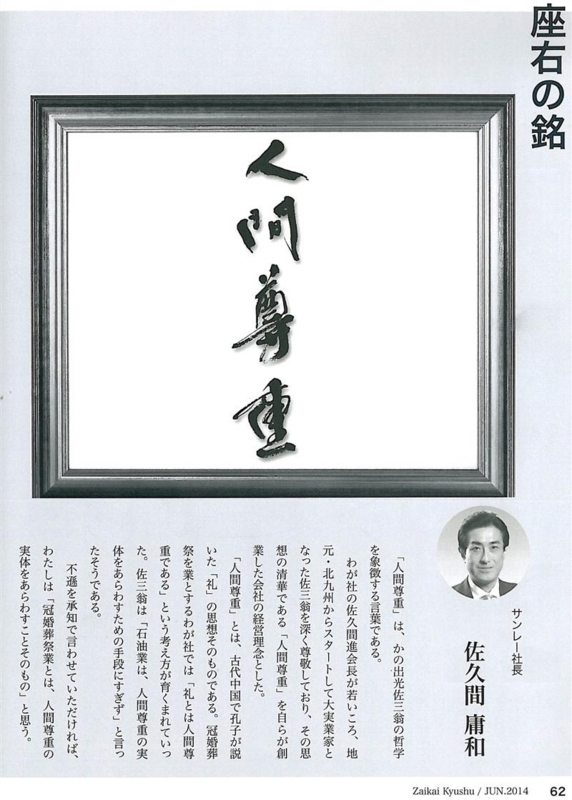 座右の銘
人間尊重
サンレー社長
佐久間 庸和
「人間尊重」は、かの出光佐三翁の哲学
を象徴する言葉である。
わが社の佐久間進会長が若いころ、地
元・北九州からスタートして大実業家と
なった佐三翁を深く尊敬しており、その思
想の清華である「人間尊重」を自らが創
業した会社の経営理念とした。
「人間尊重」とは、古代中国で孔子が説
いた「礼」の思想そのものである。冠婚葬
祭を業とするわが社では「礼とは人間尊
重である」という考え方が育くまれていっ
た。佐三翁は「石油業は、人間尊重の実
体をあらわすための手段にすぎず」と言っ
たそうである。
不遜を承知で言わせていただければ、
わたしは「冠婚葬祭業とは、人間尊重の
実体をあらわすことそのもの」と思う。
Zaikai Kyushu / JUN.2014 62